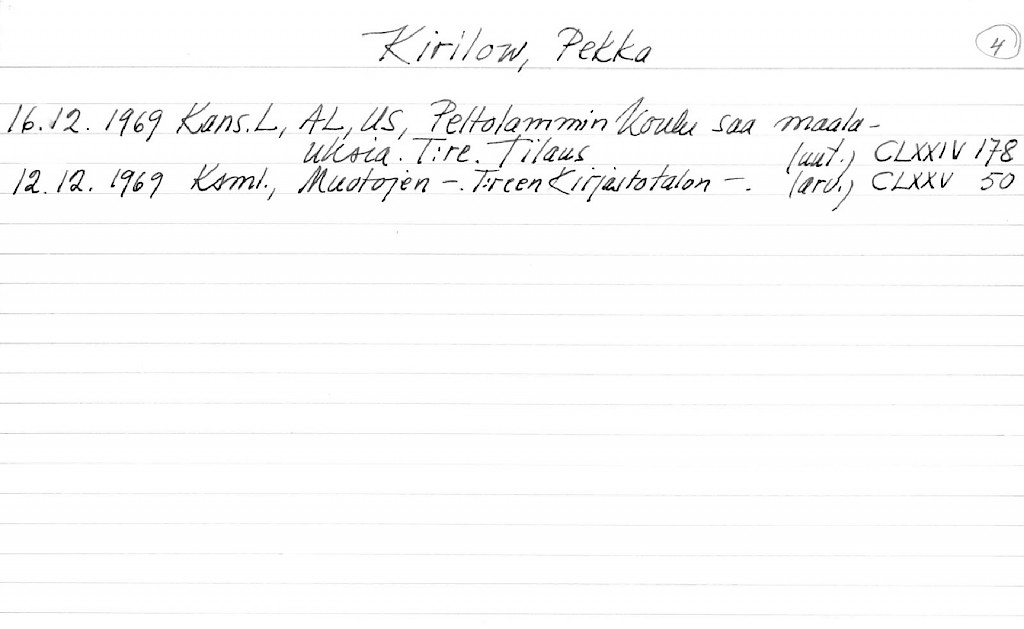 Kirilow, Pekka 4
16.12.1969 Kans.L, AL, US, Peltolammin Koulu saa maala-
uksia. T:re. Tilaus (uut.) CLXXIV 178
12.12.1969 Ksml., Muotojen -. T:reen Kirjastotalon -. (arv.) CLXXV 50